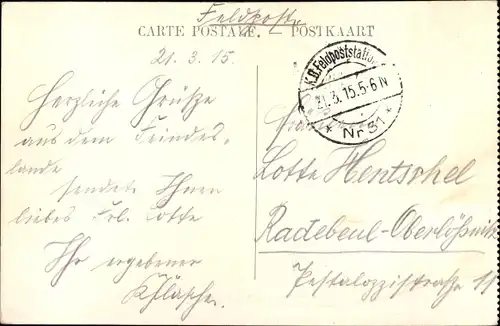 Feldpost.
CARTE POSTALE. POSTKAART
21. 3. 15.
K.D. Feldpoststation
21.3.15.5-6N
* Nr 51 *
Herzliche Grüße
aus dem Feindes-
lande
sendet Ihnen
liebes Frl. Lotte
Ihr ergebener
Lotte Hentschel
Radebeul-Oberlößnitz
Pestalozzistraße 11